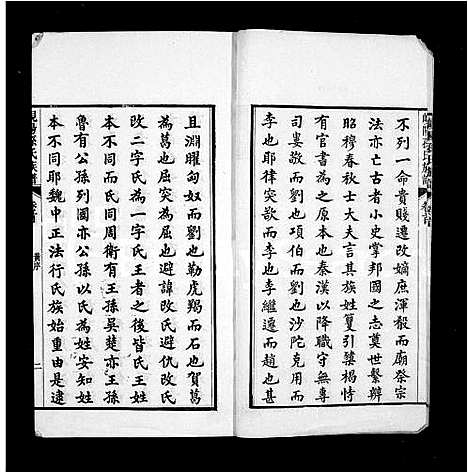 不列一命貴賤遷改嫡庶渾殽而廟祭宗
法亦亡古者小史掌邦國之志奠世繫辨
昭穆春秋士大夫言其族姓夐引㯳楬恃
有官書為之原本也秦漢以降職守無專
司婁敬而劉也項伯而劉也沙陀克用而
李也耶律突欲而李也李繼遷而趙也甚
且淵曜匈奴而劉也勒虎羯而石也賀葛
為葛也屈突為屈也避諱改氏避仇改氏
改二字氏為一字氏王者之後皆氏王姓
本不同而氏同周衛有王孫吳楚亦王孫
魯有公孫列國亦公孫以氏為姓安知姓
本不同耶魏中正法行氏族始重由是逮
孫氏族譜
卷首
序
二